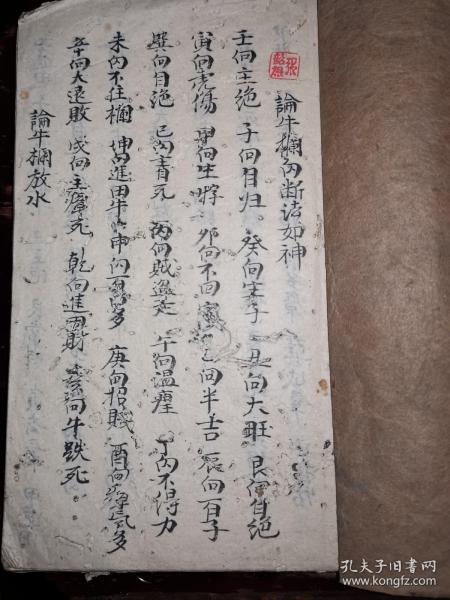 論牛欄向断诀如神
壬向主绝 子向自归 癸向生子 丑向大旺 艮向自绝
寅向虎傷 甲向生 卯向不回 乙向半吉 辰向百子
巽向自绝 巳向主瘟死 丙向賊盗走 午向温瘟 丁向不得力
未向不住欄 坤向進田牛 申向百般多 庚向招賤 酉向瘴氣多
辛向大退敗 戌向主瘴死 乾向進田財 亥向牛跌死
論牛欄放水
孔夫子旧书网
www.kongfz.com